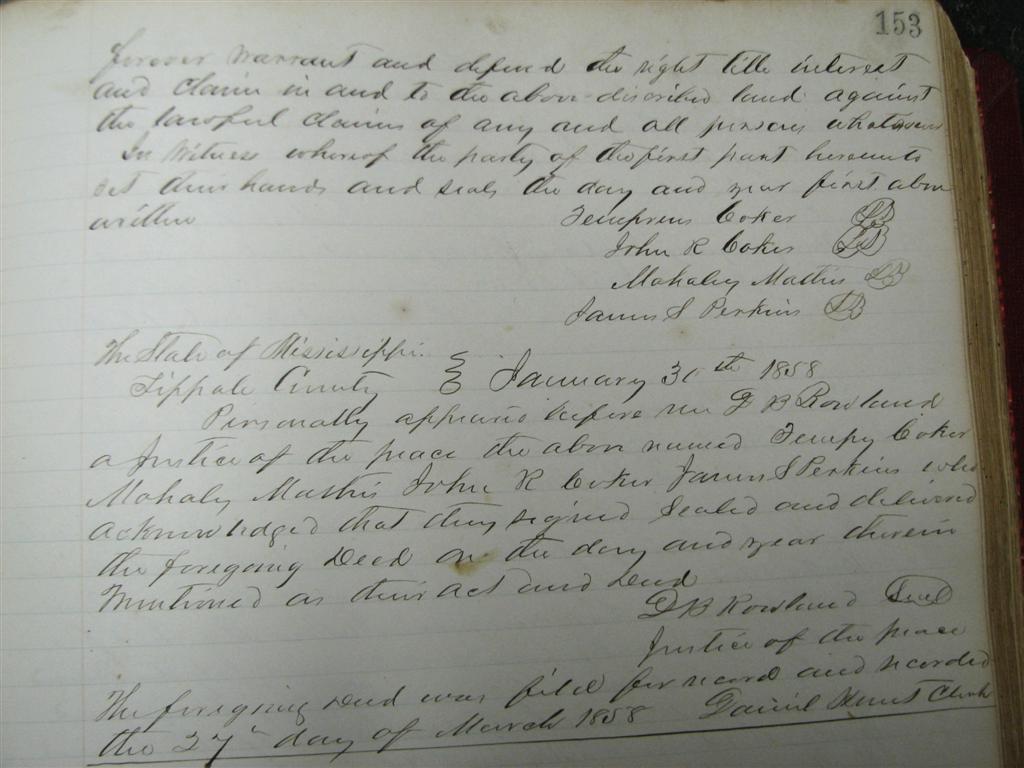 153
forever warrant and defend the right title interest
and claim in and to the above discribed land against
the lawful claims of any and all persons whatsoever
In Witness whereof the party of the first part hereunto
set their hands and seals the day and year first above
written Coker LS
John R Coker LS
Mahaley Mathis LS
James S Perkins LS
The State of Mississippi
Tippah County January 30th 1858
Personally appeared before me D B Rowland
a Justice of the peace the above named Tempy Coker
Mahaley Mathis John R Coker James S Perkins who
acknowledged that they signed sealed and delivered
the foregoing Deed on the day and year therein
mentioned as their act and deed
D B Rowland Seal
Justice of the peace
The foregoing deed was filed for record and recorded
the 27th day of March 1858 Daniel Hunt Clerk